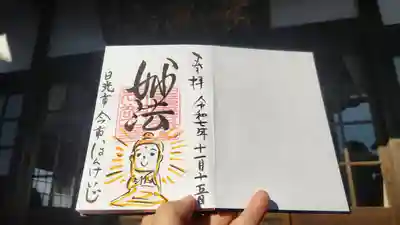 奉拝 令和七年十一月十五日
妙法
日光市 今市